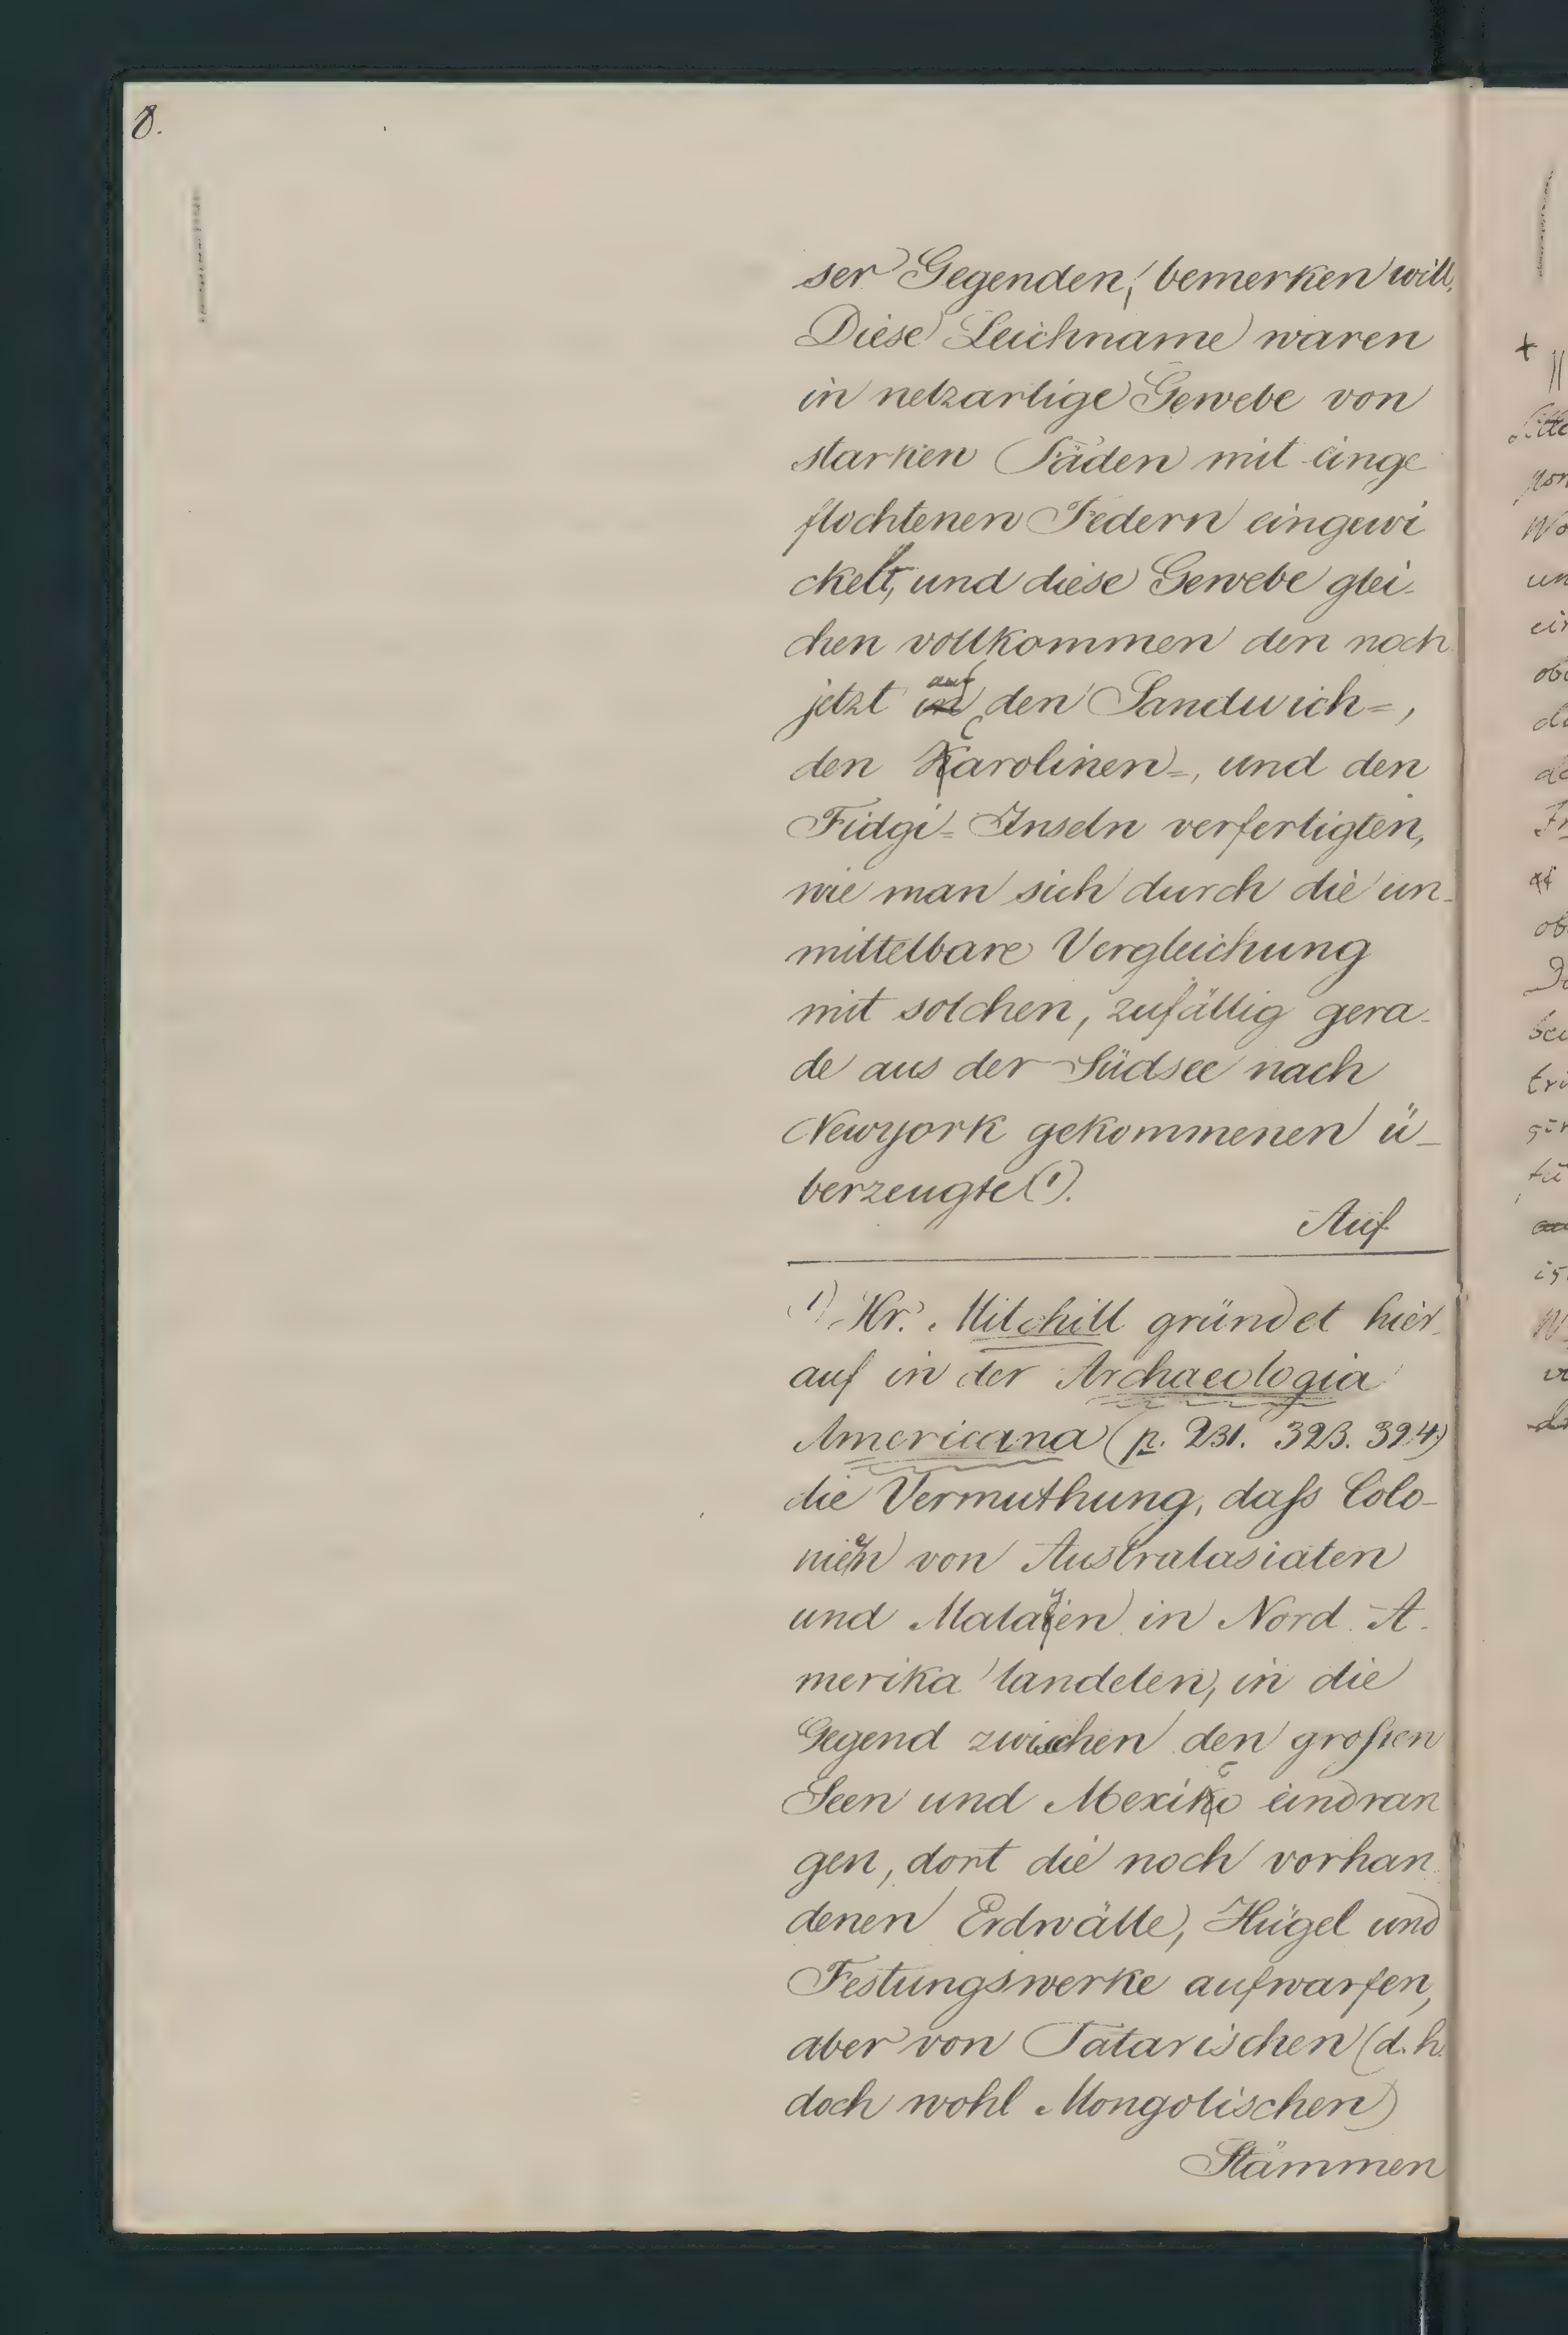 8.
ser Gegenden, bemerken will.
Diese Leichname waren
in netzartige Gewebe von
starken Fäden mit einge
flochtenen Federn eingewi
ckelt, und diese Gewebe glei-
chen vollkommen den noch
jetzt auf den Sandwich=,
den Carolinen=, und den
Fidgi=Inseln verfertigten,
wie man sich durch die un-
mittelbare Vergleichung
mit solchen, zufällig gera-
de aus der Südsee nach
Newyork gekommenen ü-
berzeugte (1).
Auf
1) Hr. Mitchill gründet hier-
auf in der Archaeologia
Americana (p. 231. 323. 324.)
die Vermuthung, daſs Colo-
nieen von Australasiaten
und Malayen in Nord-A-
merika landeten, in die
Gegend zwischen den groſsen
Seen und Mexico eindran
gen, dort die noch vorhan
denen Erdwälle, Hügel und
Festungswerke aufwarfen,
aber von Tatarischen (d. h.
doch wohl Mongolischen)
Stämmen